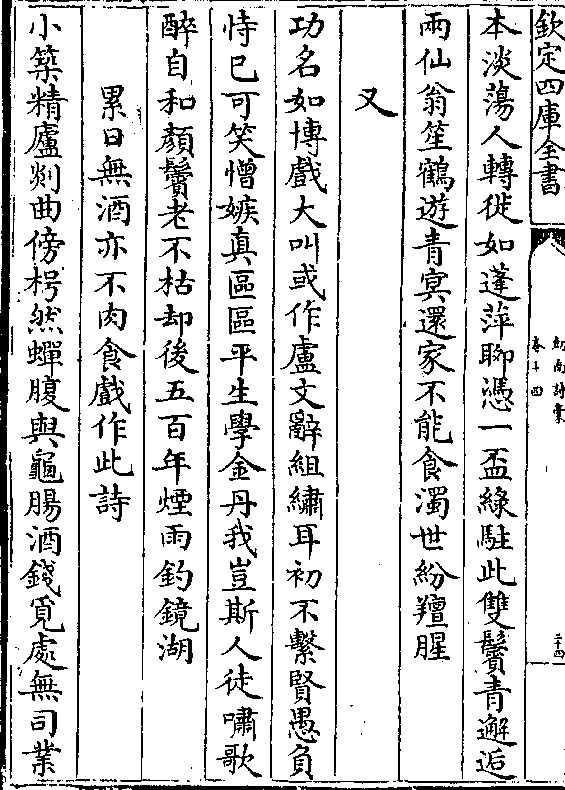 欽定四庫全書
劍南詩稾
卷十四
二十四
本淡蕩人轉徙如蓬萍聊憑一盃綠駐此雙鬢青邂逅
兩仙翁笙鶴遊青冥還家不能食濁世紛羶腥
又
功名如博戲大叫或作盧文辭組繡耳初不繫賢愚負
恃已可笑憎嫉真區區平生學金丹我豈斯人徒嘯歌
醉自和顏鬢老不枯却後五百年煙雨釣鏡湖
累日無酒亦不肉食戲作此詩
小築精廬剡曲傍枵然蟬腹與龜腸酒錢覓處無司業